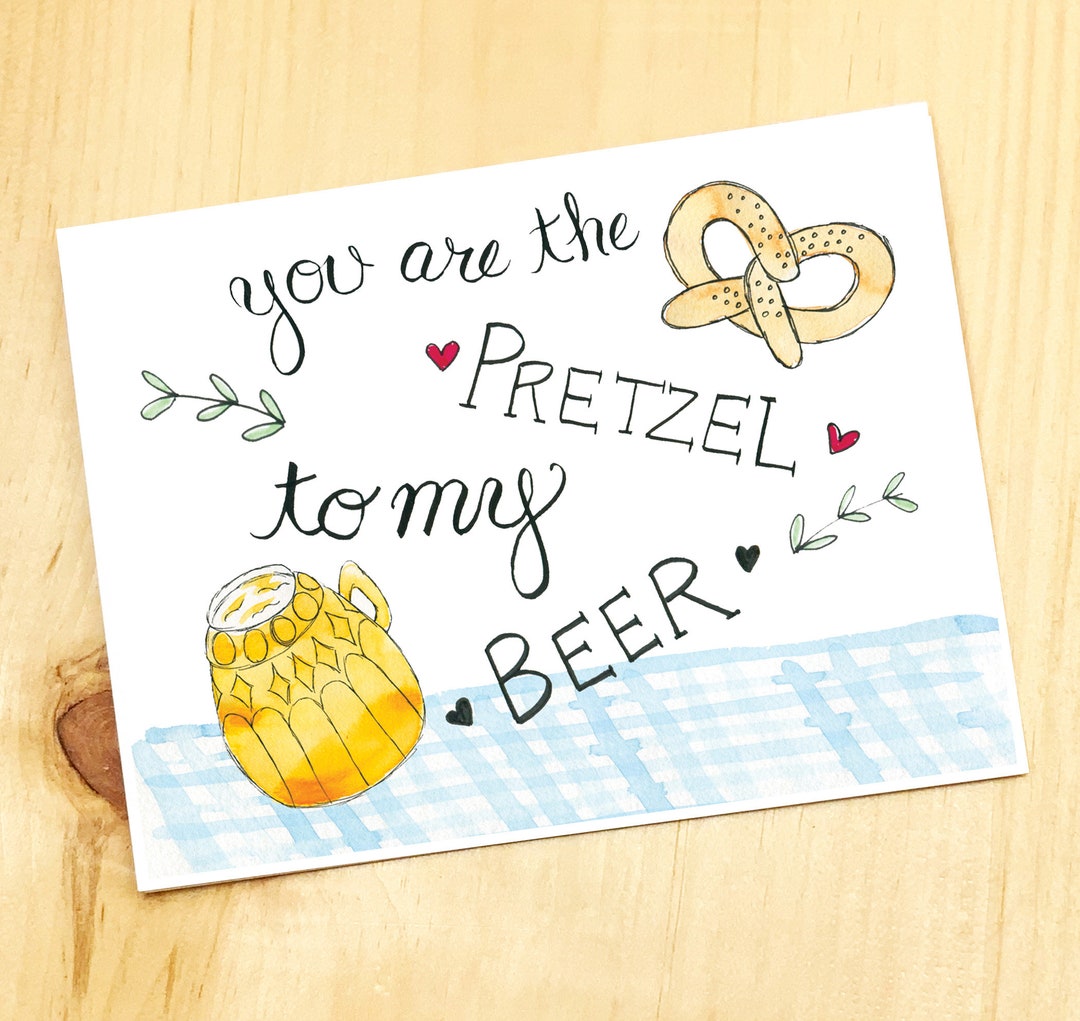 you are the
PRETZEL
to my
BEER